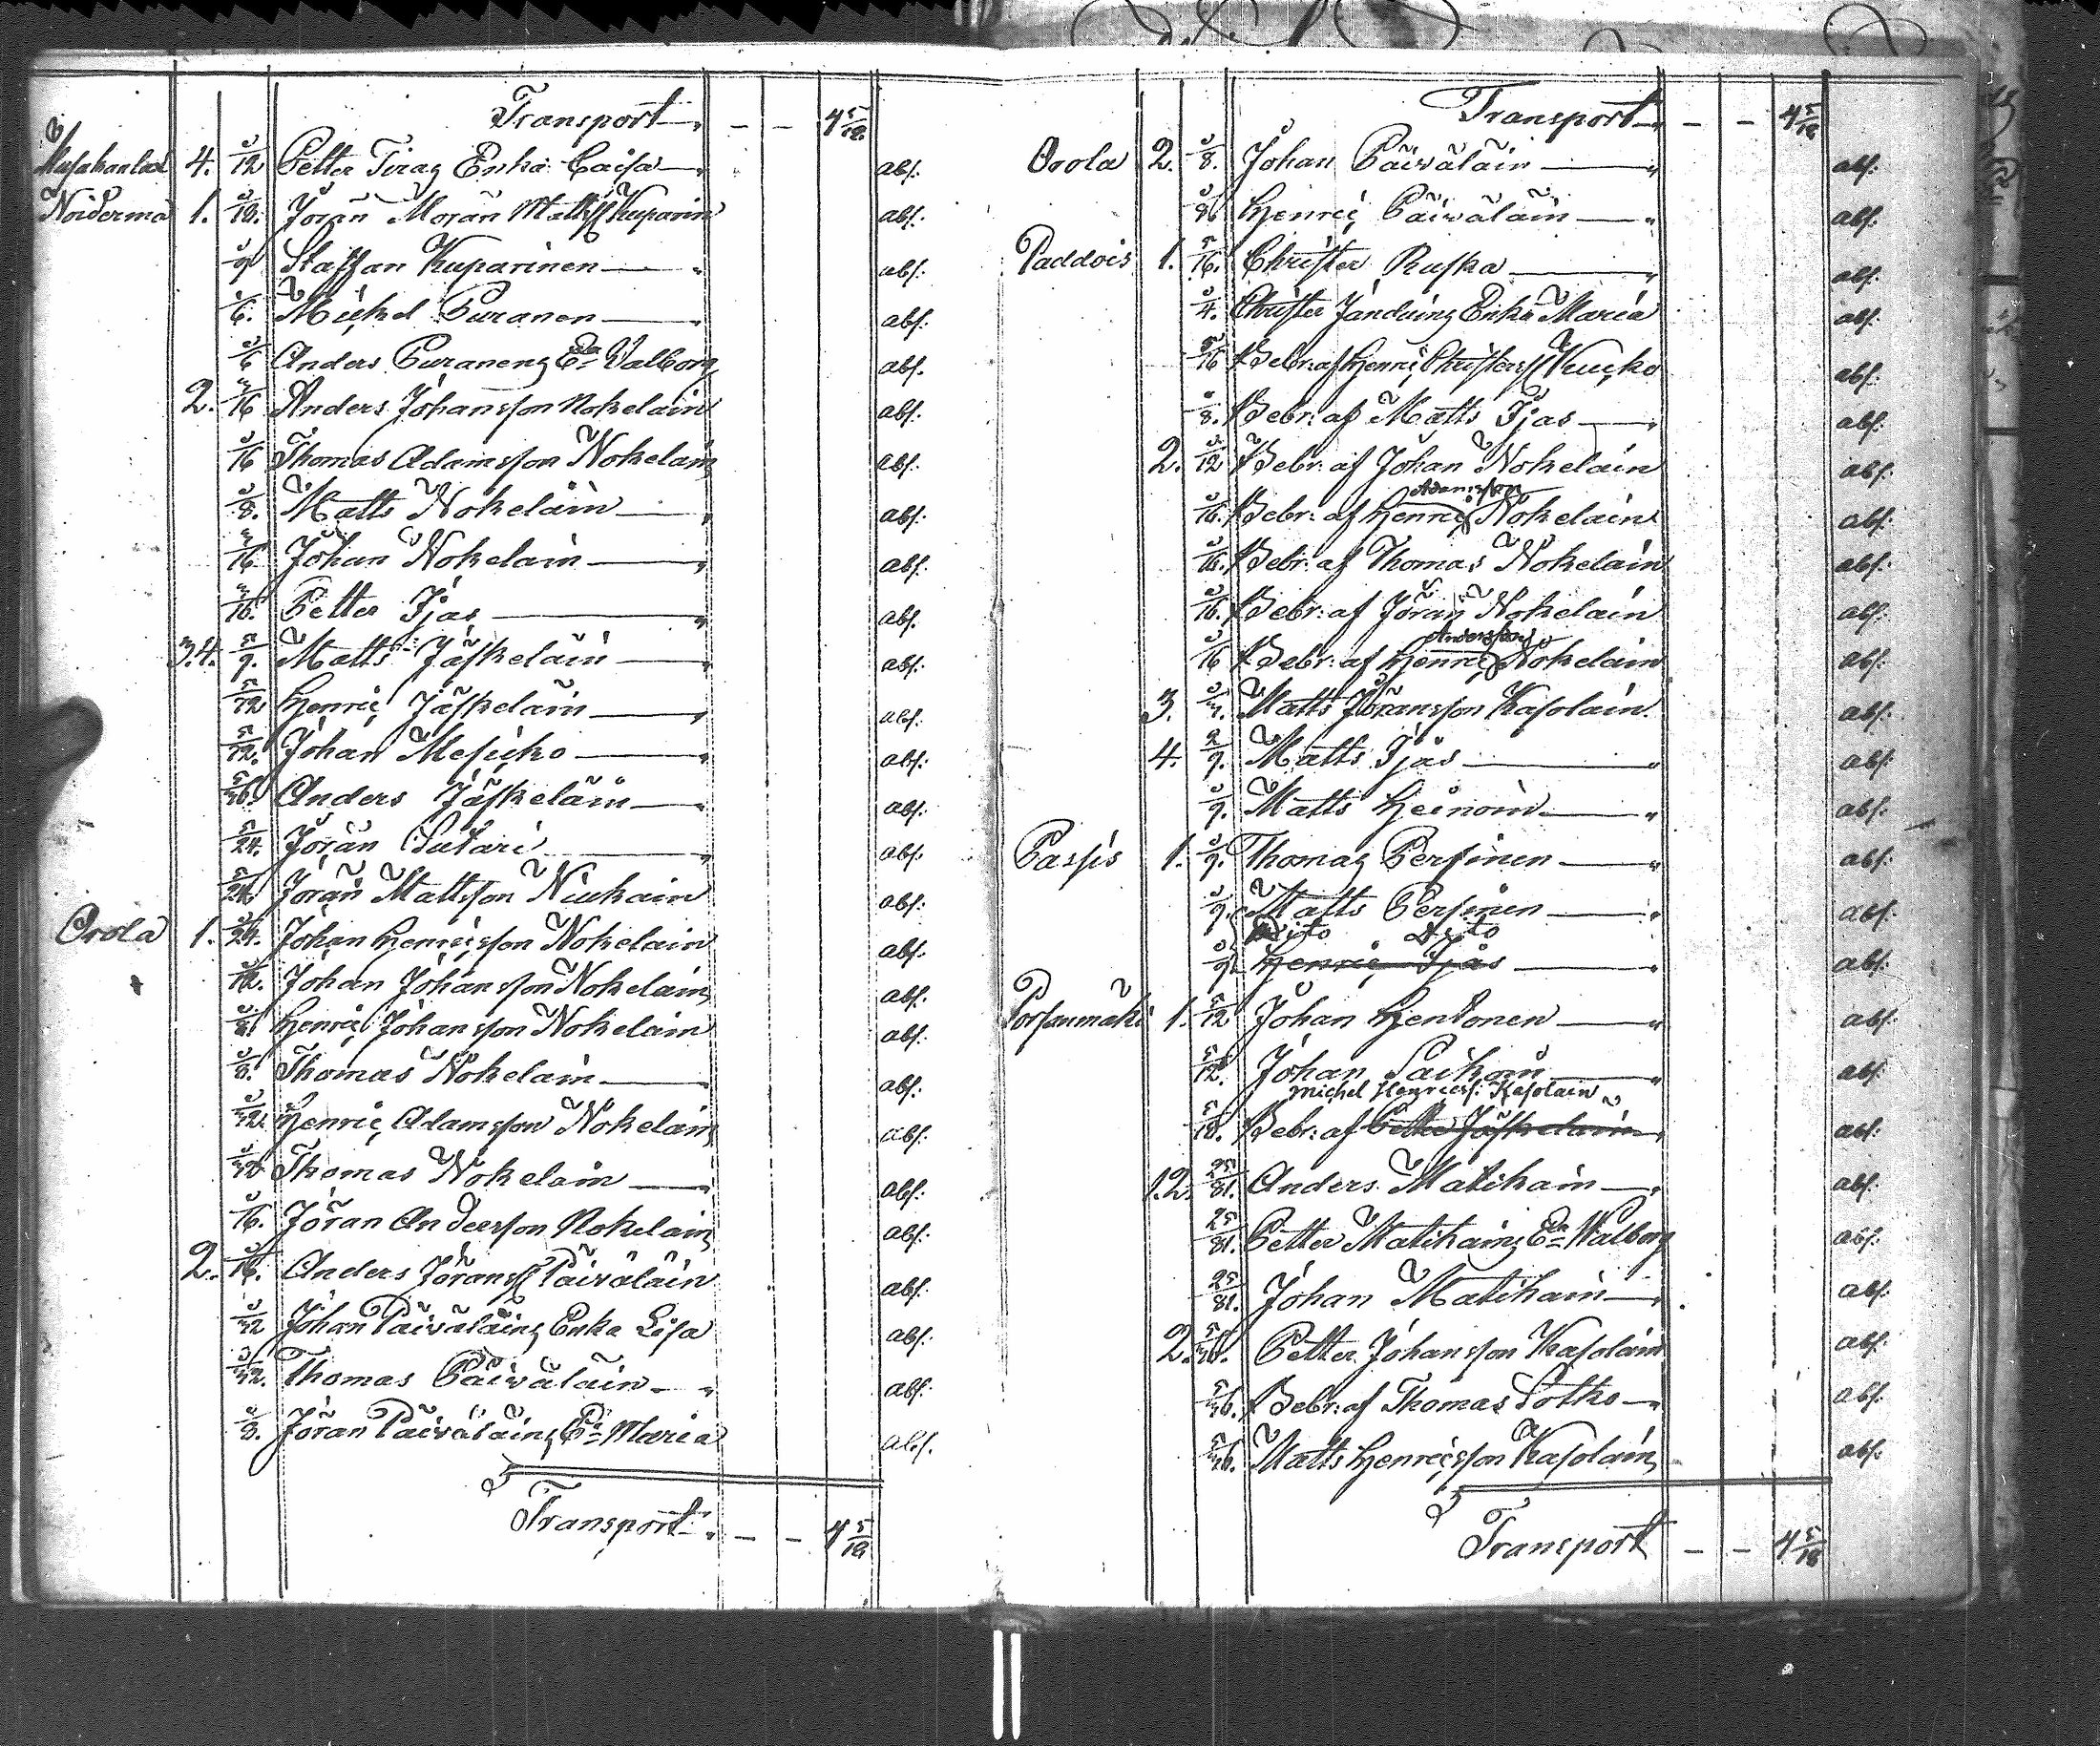 Transport — — 4 5/12
4. 1/12 Petter Tiraz Enka Caisa abs.
Noidermä 1. Jöran Morän Mattss Kuparin abs.
1/9 Staffan Kuparinen abs.
1/6. Michel Puranen abs.
1/6 Anders Puranens Ea Valborg abs.
2. /16 Anders Johansson Nokelain abs.
1/16 Thomas Adamsson Nokelain abs.
1/8. Matts Nokelain abs.
/16 Johan Nokelain abs.
/16. Petter Ijas abs.
3.4. 5/9. Matts Jäskeläin abs.
5/72 Henric Jäskeläin abs.
5/72. Johan Mesicko abs.
5/36. Anders Jäskeläin abs.
5/24. Jöran Sutari abs.
5/24. Jöran Mattsson Niukain abs.
Orola 1. 1/24. Johan Henricsson Nokelain abs.
1/12. Johan Johansson Nokelain abs.
1/8 Henric Johansson Nokelain abs.
1/8. Thomas Nokelain abs.
1/32. Henric Adamsson Nokelain abs.
1/32 Thomas Nokelain abs.
1/16. Jöran Andersson Nokelain abs.
2. 1/16. Anders Jöranss Päiväläin abs.
1/32 Johan Päiväläins Enka Lisa abs.
3/32. Thomas Päiväläin abs.
1/8. Jöran Päiväläins Ea Maria abs.
Transport — — 4 5/12
Transport — — 4 5/12
Orola 2. 1/8. Johan Päiväläin abs.
Henric Päiväläin abs.
Paddois 1. 5/16. Christer Ruska abs.
1/4. Christer Janduins Enka Maria abs.
5/16 Bebr: af Henric Christerss Kucko abs.
1/8. Bebr: af Matts Ijas abs.
2. 1/12 Bebr: af Johan Nokelain abs.
Adamsson
1/16. Bebr: af Henric Nokelain abs.
1/16. Bebr: af Thomas Nokelain abs.
1/16. Bebr: af Jöran Nokelain abs.
Andersson
1/16 Bebr: af Henric Nokelain abs.
3. Matts Jöransson Kasolain abs.
4. 2/9. Matts Ijäs abs.
1/9. Matts Heinoin abs.
Passis 1. 1/9. Thomas Persinen abs.
1/9. Matts Persinen abs.
Dito Dito
1/9 Henric Ijäs abs.
Porsanmäki 1. 5/12 Johan Hentonen abs.
5/12. Johan Paikoin abs.
Michel Henricss: Kasolain
5/18. Bebr: af Petter Jäskeläin abs.
1.2. 25/81. Anders Matikain abs.
25/81. Petter Matikains Ea Walborg abs.
25/81. Johan Matikain abs.
2. 5/36. Petter Johansson Kasolain abs.
5/36. Bebr: af Thomas Potko abs.
5/36. Matts Henricsson Kasolain abs.
Transport — — 4 5/18